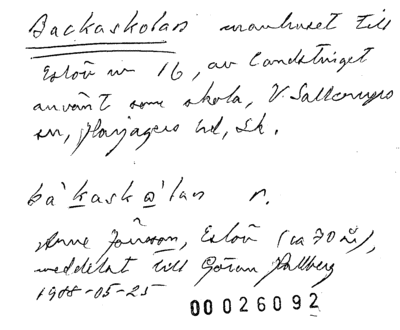 Backaskolan manhuset till
Eslöv nr 16, av Landstinget
använt som skola, V. Sallerups
sn, Harjagers hd, Sk.
ba`kask a`lan r.
Arne Jönsson, Eslöv (ca 70 år),
meddelat till Göran Hallberg
1988-05-25
00026092